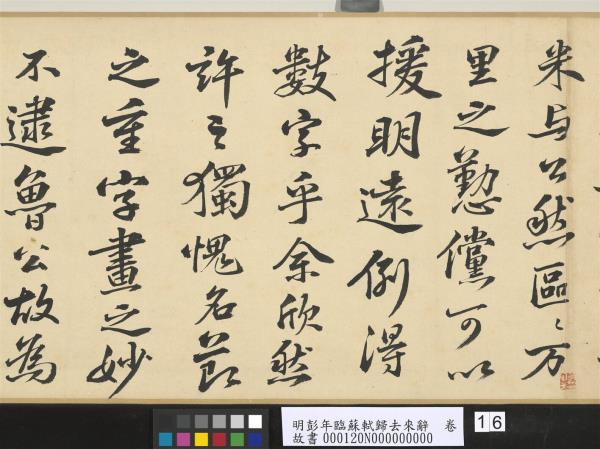 米与公然區〻万
里之懃儻可以
援明遠例得
數字乎余欣然
許之獨愧名節
之重字畫之妙
不逮魯公故為
明彭年臨蘇軾歸去來辭 卷
故書000120N000000000
16